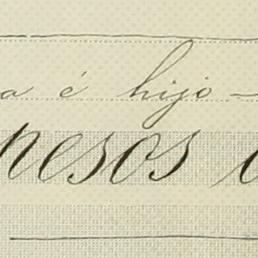 a é hijo
pesos